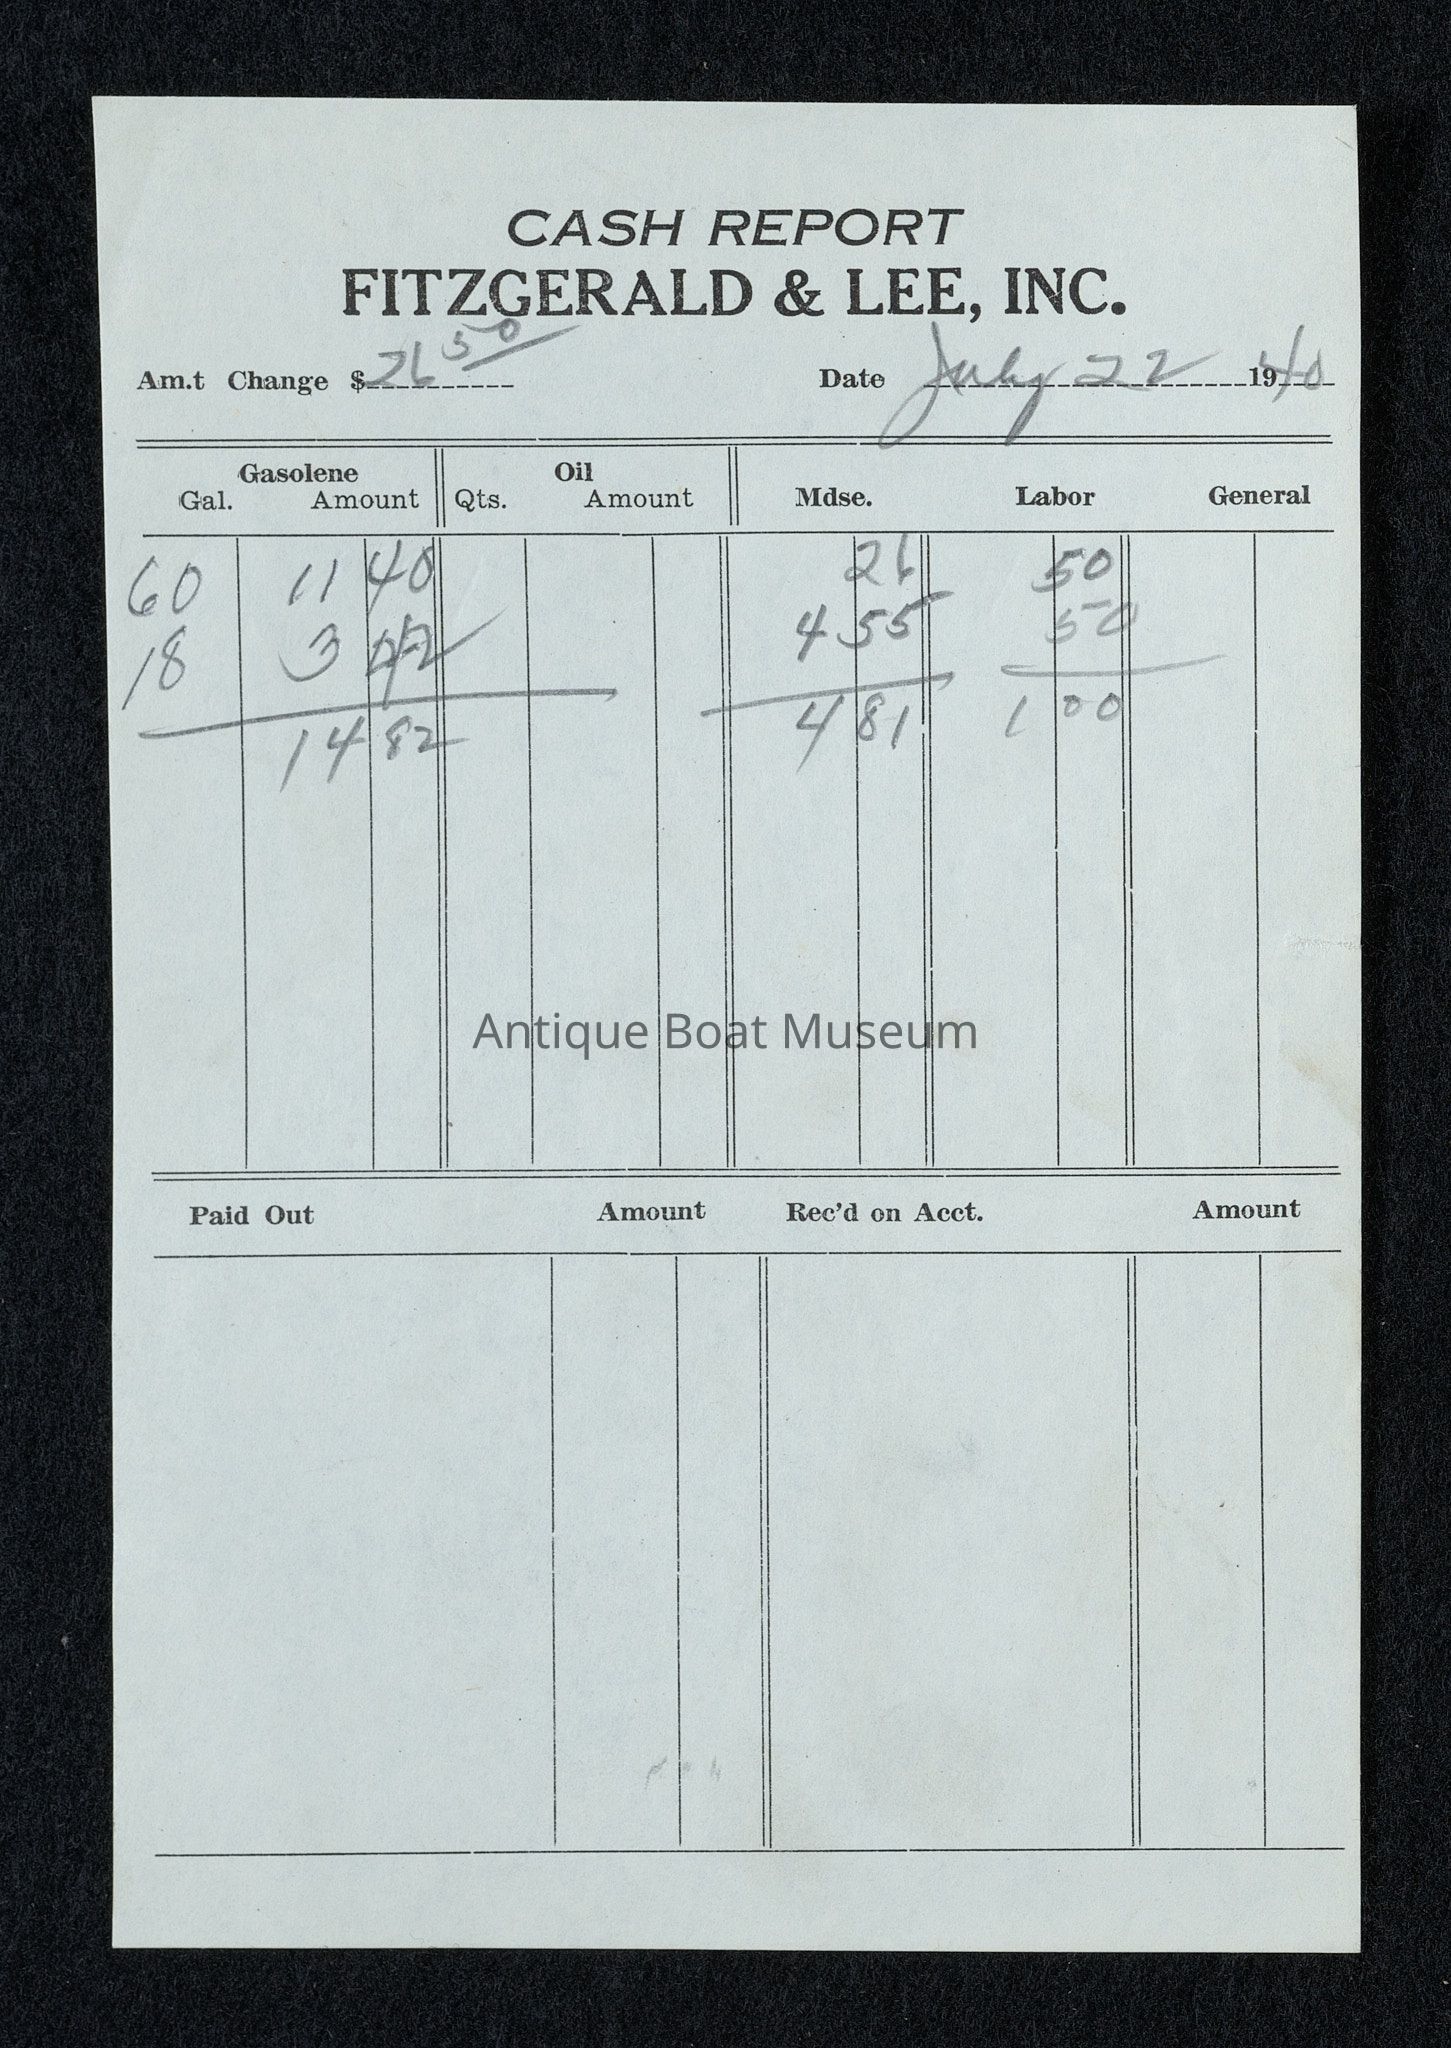 CASH REPORT
FITZGERALD & LEE, INC.
Am.t Change $ 26 50 Date July 22 1940
Gasolene Oil
Gal. Amount Qts. Amount Mdse. Labor General
60 11 40 26 50
18 3 42 4 55 50
14 82 4 81 1 00
Antique Boat Museum
Paid Out Amount Rec'd on Acct. Amount